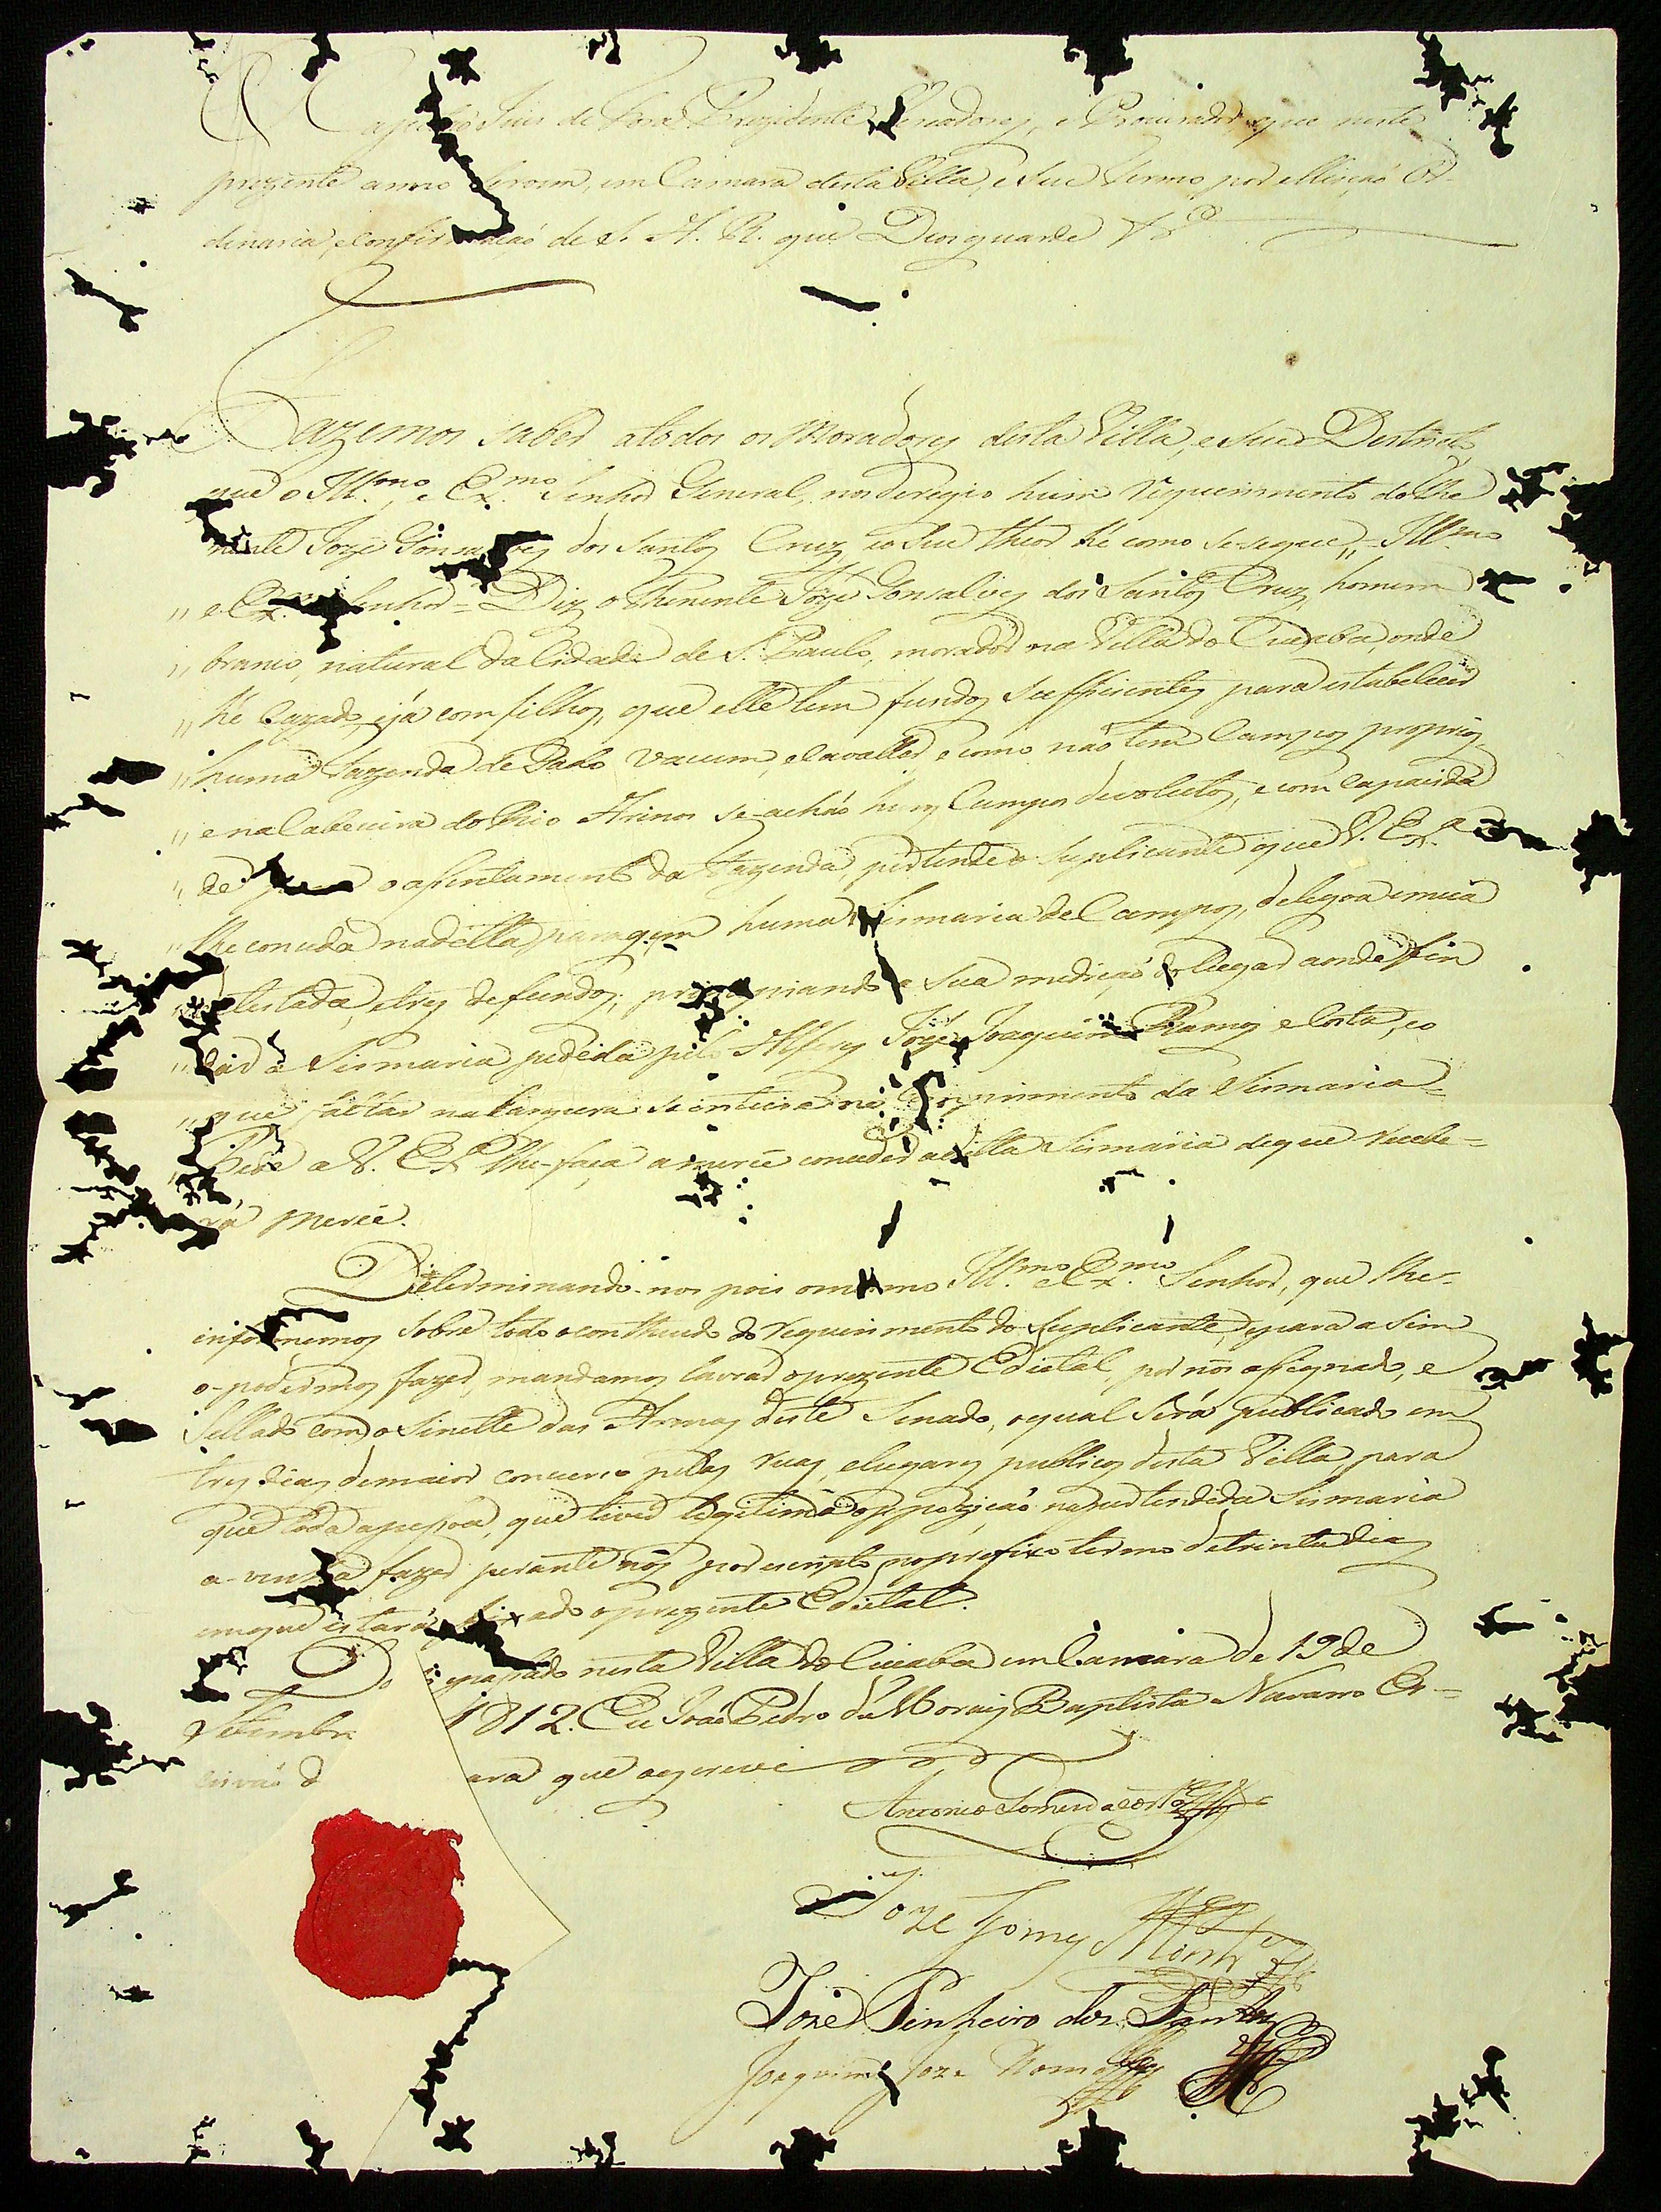 Juis de Fora Prezidente Vereadores, e Procurador que neste
prezente anno Servem, em Camara desta Villa, e Seu Termo por elleição Or-
dinaria, e confirmação de S. A. R. que Deos guarde &ª
Fazemos saber a todos os Moradores desta Villa, e Seu Destricto,
que o Ill.mo e Ex.mo Senhor General, nos deregio hum requerimento do The
nente Joze Gonsalves dos Santos Cruz, e o Seu theor hé como se-segue,, = Ill.mo
,, e Ex.mo Senhor = Diz o Thenente Joze Gonsalves dos Santos Cruz, homem
,, branco, natural da Cidade de S. Paulo, morador na Villa do Cuyaba, onde
,, hé Cazado, e já com filhos, que elle tem fundos Sufficientes para estabelecer
,, huma Fazenda de Gado Vacum, e Cavallar, e como não tem Campos proprios,
,, e na Cabeceira do Rio Arinos se-achão huns Campos devolutos, e com Capacida
,, de para o assentamento da Fazenda, pertende o Suplicante que V. Ex.ª
,, lhe conceda na ditta paragem huma Sismaria de Campos, de legoa e meia
,, de testada, e tres de fundos, principiando a Sua medição do lugar aonde fin
,, dar a Sismaria pedida pelo Alferes Joze Joaquim Ramos e Costa, e o
,, que faltar na largura se-inteire no Comprimento da Sismaria =
,, Pede a V. Ex.ª lhe-faça a merce conceder a ditta Sismaria de que recebe =
rá Merce.
Determinando-nos pois o mesmo Ill.mo e Ex.mo Senhor, que lhe-
informemos Sobre todo o contheudo do requerimento do Suplicante, e para asim
o-podermos fazer, mandamos lavrar o prezente Edictal, por nós assignado, e
Sellado com o Sinette das Armas deste Senado, o qual Será publicado em
tres dias de maior concurso pelas ruas, e lugares publicos desta Villa para
que toda a pessoa, que tiver legitima oppozição na pertendida Sismaria
a-venha fazer perante nós por escripto no prefixo termo de trinta dias
em que estará fixado o prezente Edictal.
Da passado nesta Villa do Cuiaba em Camara de 19 de
Setembr 1812. Eu João Pedro de Moraes Baptista Navarro Es =
crivão d ara que escrevi
Antonio Gomes da Costa
Joze Gomes Montr.º
Joze Pinheiro dos Santos
Joaquim Joze